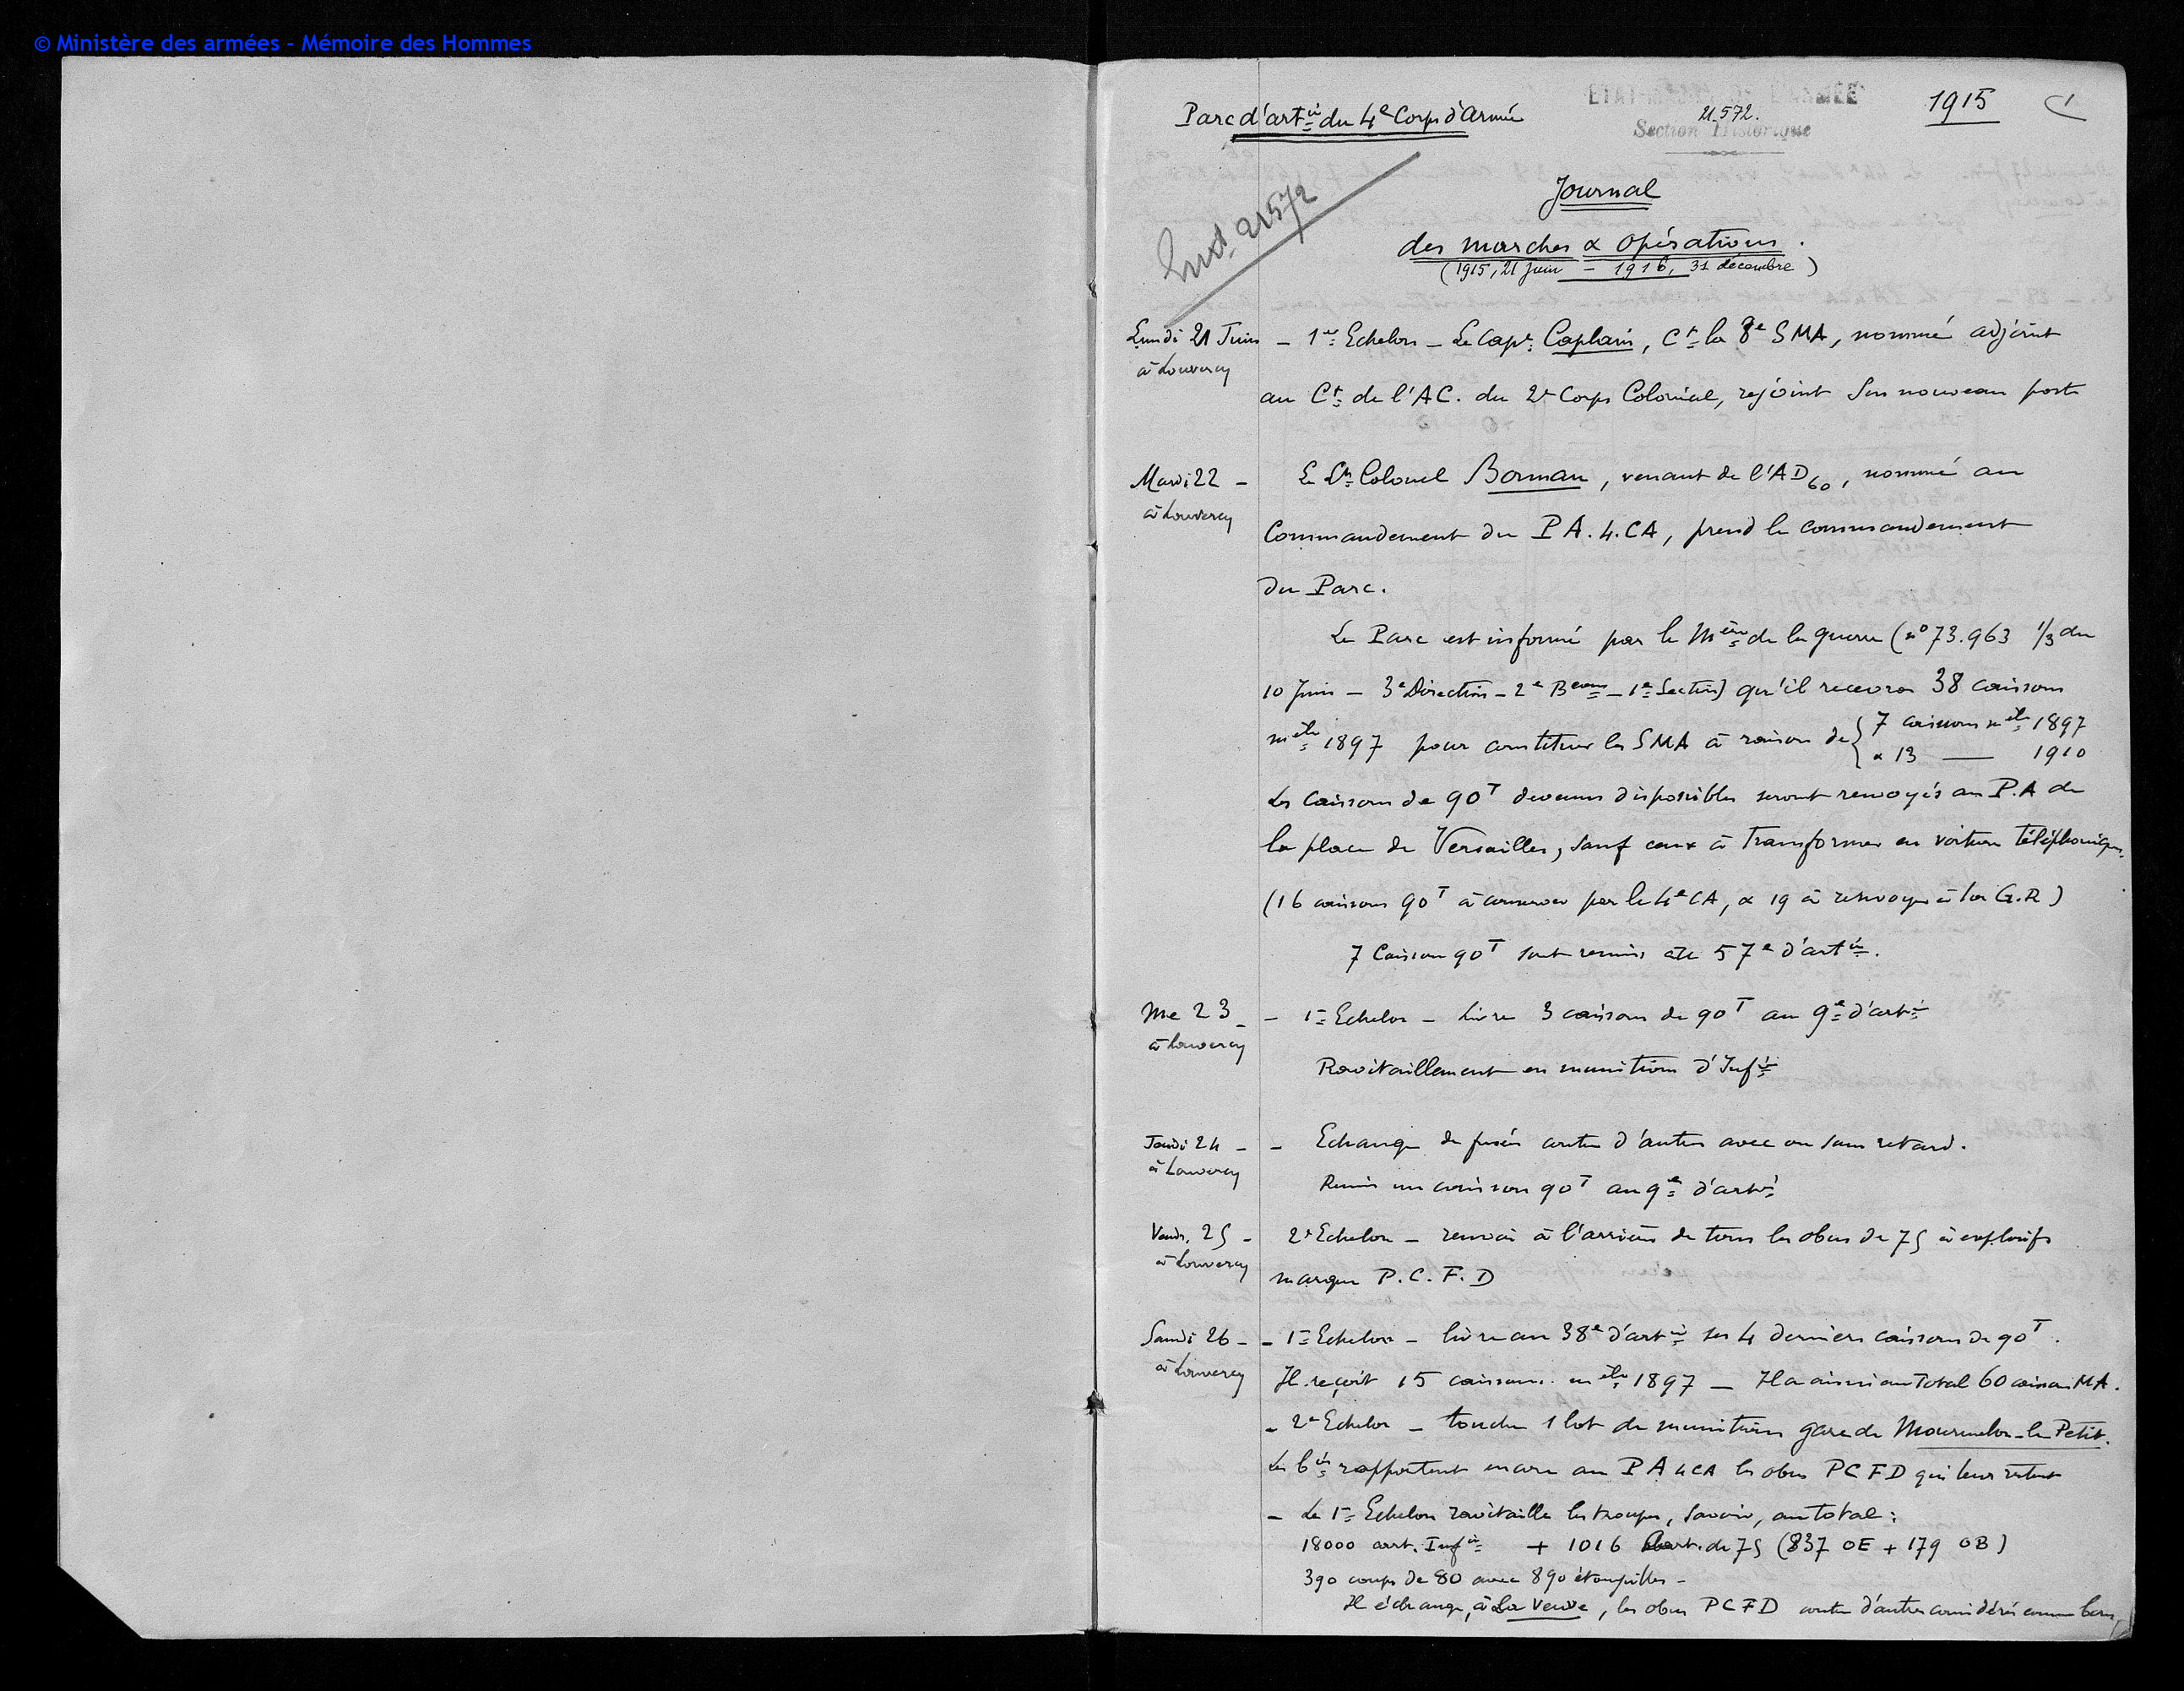 © Ministère des armées - Mémoire des Hommes
Parc d'artie du 4e Corps d'Armée
ETAT-MAJOR DE L'ARMÉE
21.572.
Section Historique
1915
1
Inv. 21572
Journal
des marches & opérations.
(1915, 21 juin - 1916, 31 décembre)
Lundi 21 Juin - 1er Echelon - Le Cape Caplain, Ct la 8e SMA, nommé adjoint
à Louvercy
au Ct de l'AC. du 2e Corps Colonial, rejoint son nouveau poste
Mardi 22 - Le Lt Colonel Borman, venant de l'AD60, nommé au
à Louvercy
Commandement du PA.4.CA, prend le commandement
du Parc.
Le Parc est informé par le Mère de la guerre (n° 73.963 1/3 du
10 Juin - 3e Direction - 2e Beau - 1e Section) qu'il recevra 38 caissons
mle 1897 pour constituer les SMA à raison de { 7 caissons mle 1897
& 13 — 1910
Les caissons de 90T devenus disponibles seront renvoyés au P.A de
la place de Versailles, sauf ceux à transformer en voitures téléphoniques.
(16 caissons 90T à conserver par le 4e CA, & 19 à renvoyer à la G.R)
7 Caissons 90T sont remis au 57e d'artie.
Me 23 - - 1er Echelon - Livre 3 caissons de 90T au 9e d'artie
à Louvercy
Ravitaillement en munitions d'Infie
Jeudi 24 - - Echange de fusées contre d'autres avec ou sans retard.
à Louvercy
Remis un caisson 90T au 9e d'artie
Vendr. 25 - 2e Echelon - renvoi à l'arrière de tous les obus de 75 à explosifs
à Louvercy
marqués P.C.F.D
Samdi 26 - - 1er Echelon - livre au 38e d'artie ses 4 derniers caissons de 90T.
à Louvercy
Il reçoit 15 caissons mle 1897 - Il a ainsi au Total 60 caissons MA.
- 2e Echelon - touche 1 lot de munitions gare de Mourmelon-le Petit.
Les bies rapportent encore au PA 4CA les obus PCFD qui leur restent
- Le 1er Echelon ravitaille les troupes, savoir, au total :
18000 cart. Infie + 1016 cart. de 75 (837 OE + 179 OB)
390 coups de 80 avec 890 étoupilles -
Il échange, à La Veuve, les obus PCFD contre d'autres considérés comme bons,